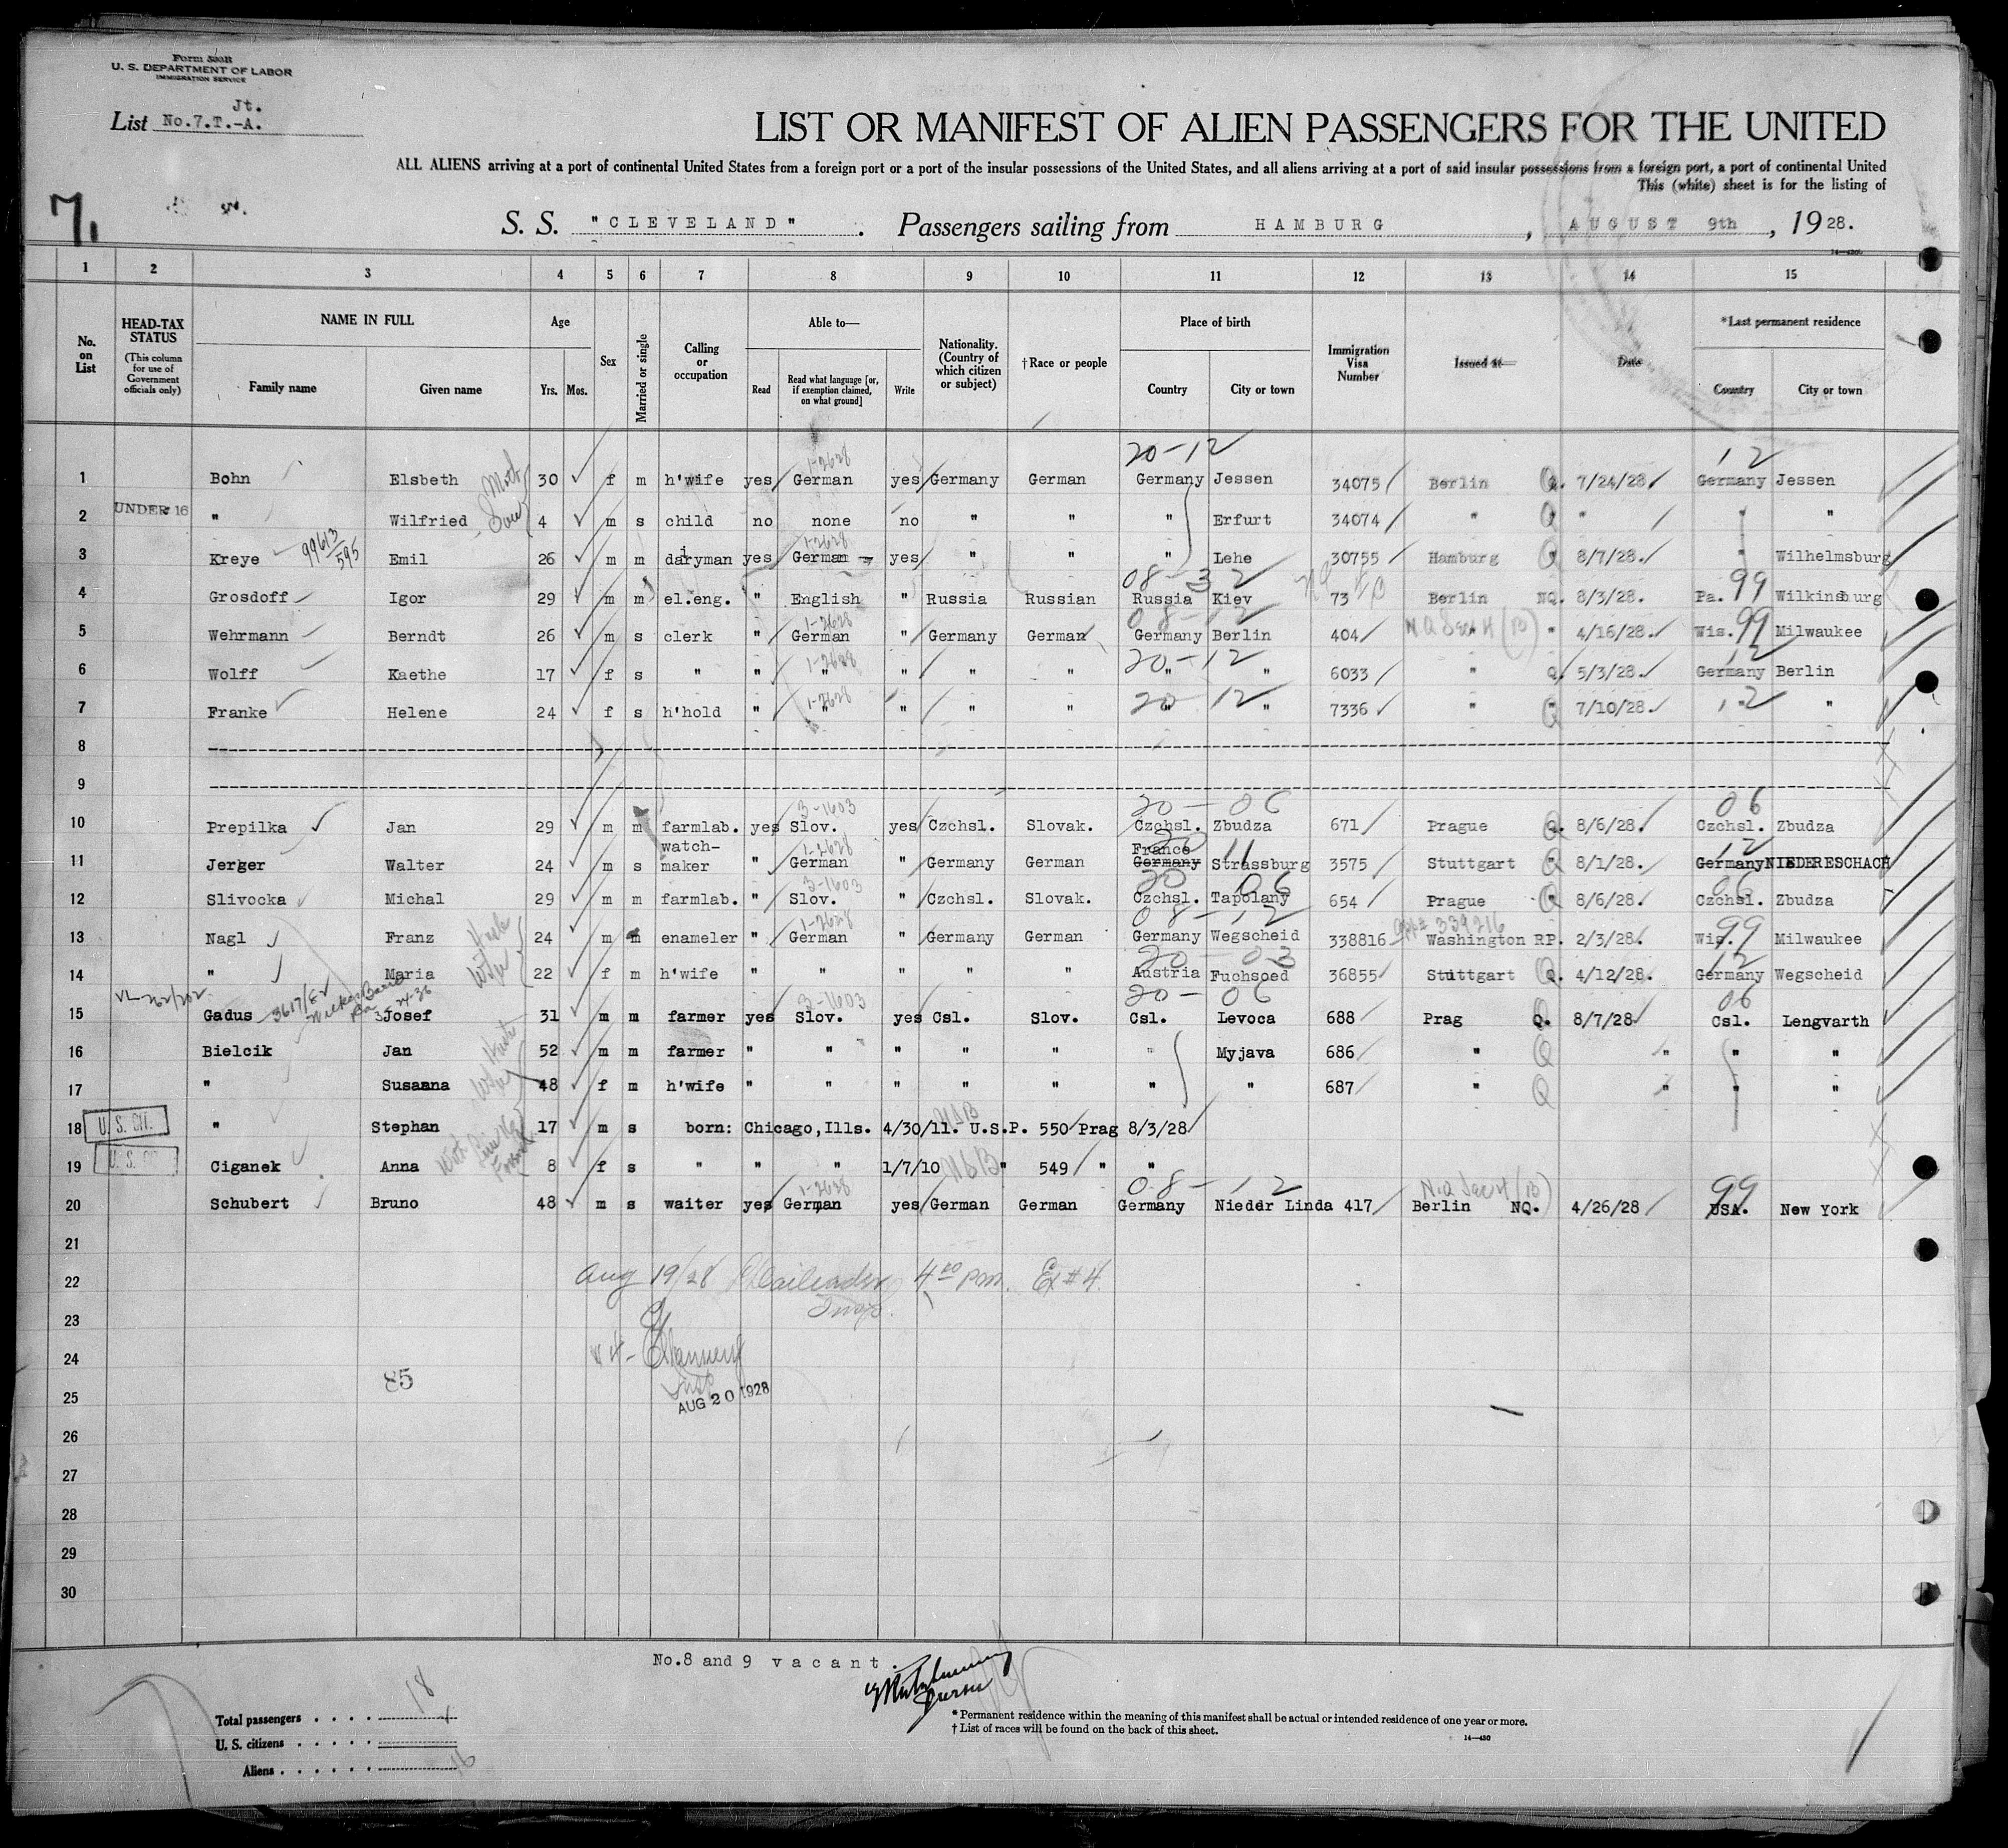 Form 500B
U. S. DEPARTMENT OF LABOR
IMMIGRATION SERVICE
Jt.
List No.7.T.-A.
LIST OR MANIFEST OF ALIEN PASSENGERS FOR THE UNITED
ALL ALIENS arriving at a port of continental United States from a foreign port or a port of the insular possessions of the United States, and all aliens arriving at a port of said insular possessions from a foreign port, a port of continental United
This (white) sheet is for the listing of
7.
S. S. "CLEVELAND". Passengers sailing from HAMBURG, AUGUST 9th, 1928.
1 2 3 4 5 6 7 8 9 10 11 12 13 14 15
No. on List
HEAD-TAX STATUS
(This column for use of Government officials only)
NAME IN FULL
Family name Given name
Age
Yrs. Mos.
Sex
Married or single
Calling or occupation
Able to—
Read
Read what language [or, if exemption claimed, on what ground]
Write
Nationality. (Country of which citizen or subject)
†Race or people
Place of birth
Country City or town
Immigration Visa Number
Issued at—
Date
*Last permanent residence
Country City or town
20-12 12
1-2628
1 Bohn Elsbeth 30 f m h'wife yes German yes Germany German Germany Jessen 34075 Berlin Q. 7/24/28. Germany Jessen
2 UNDER 16 " Wilfried 4 m s child no none no " " " Erfurt 34074 " Q " " "
99613/595 1-2628
3 Kreye Emil 26 m m dairyman yes German yes " " " Lehe 30755 Hamburg Q 8/7/28. " Wilhelmsburg
08-32 99
4 Grosdoff Igor 29 m m el.eng. " English " Russia Russian Russia Kiev 73 Berlin NQ. 8/3/28. Pa. Wilkinsburg
1-2628 08-12 99
5 Wehrmann Berndt 26 m s clerk " German " Germany German Germany Berlin 404 " " 4/16/28. Wis. Milwaukee
1-2628 20-12 12
6 Wolff Kaethe 17 f s " " " " " " " " 6033 " Q. 5/3/28. Germany Berlin
1-2628 20 12 12
7 Franke Helene 24 f s h'hold " " " " " " " 7336 " Q 7/10/28. " "
8
9
3-1603 20-06 06
10 Prepilka Jan 29 m m farmlab. yes Slov. yes Czchsl. Slovak. Czchsl. Zbudza 671 Prague Q. 8/6/28. Czchsl. Zbudza
watch- 1-2628 France 20 11 12
11 Jerger Walter 24 m s maker " German " Germany German Germany Strassburg 3575 Stuttgart Q 8/1/28. Germany NIEDERESCHACH
3-1603 20 06 06
12 Slivocka Michal 29 m m farmlab. " Slov. " Czchsl. Slovak. Czchsl. Tapolany 654 Prague Q 8/6/28. Czchsl. Zbudza
1-2628 08-12 339216 99
13 Nagl Franz 24 m m enameler " German " Germany German Germany Wegscheid 338816 Washington RP. 2/3/28. Wis. Milwaukee
20-03 12
14 " Maria 22 f m h'wife " " " " " Austria Fuchsoed 36855 Stuttgart Q. 4/12/28. Germany Wegscheid
3-1603 20-06 06
15 Gadus Josef 31 m m farmer yes Slov. yes Csl. Slov. Csl. Levoca 688 Prag Q. 8/7/28 Csl. Lengvarth
16 Bielcik Jan 52 m m farmer " " " " " " Myjava 686 " Q " " "
17 " Susanna 48 f m h'wife " " " " " " " 687 " Q " " "
18 U. S. CIT. " Stephan 17 m s born: Chicago,Ills. 4/30/11. U.S.P. 550 Prag 8/3/28
19 U. S. CIT. Ciganek Anna 8 f s " " " 1/7/10 " 549 " "
1-2628 08-12 99
20 Schubert Bruno 48 m s waiter yes German yes German German Germany Nieder Linda 417 Berlin NQ. 4/26/28 USA. New York
21
22 Aug 19/28 4 00 pm. Ex #4
23 Insp.
24
25 85 Insp AUG 20 1928
26
27
28
29
30
No.8 and 9 vacant.
Purser
Total passengers . . . . 18
U. S. citizens . . . . .
Aliens . . . . . . 16
* Permanent residence within the meaning of this manifest shall be actual or intended residence of one year or more.
† List of races will be found on the back of this sheet.
14—430